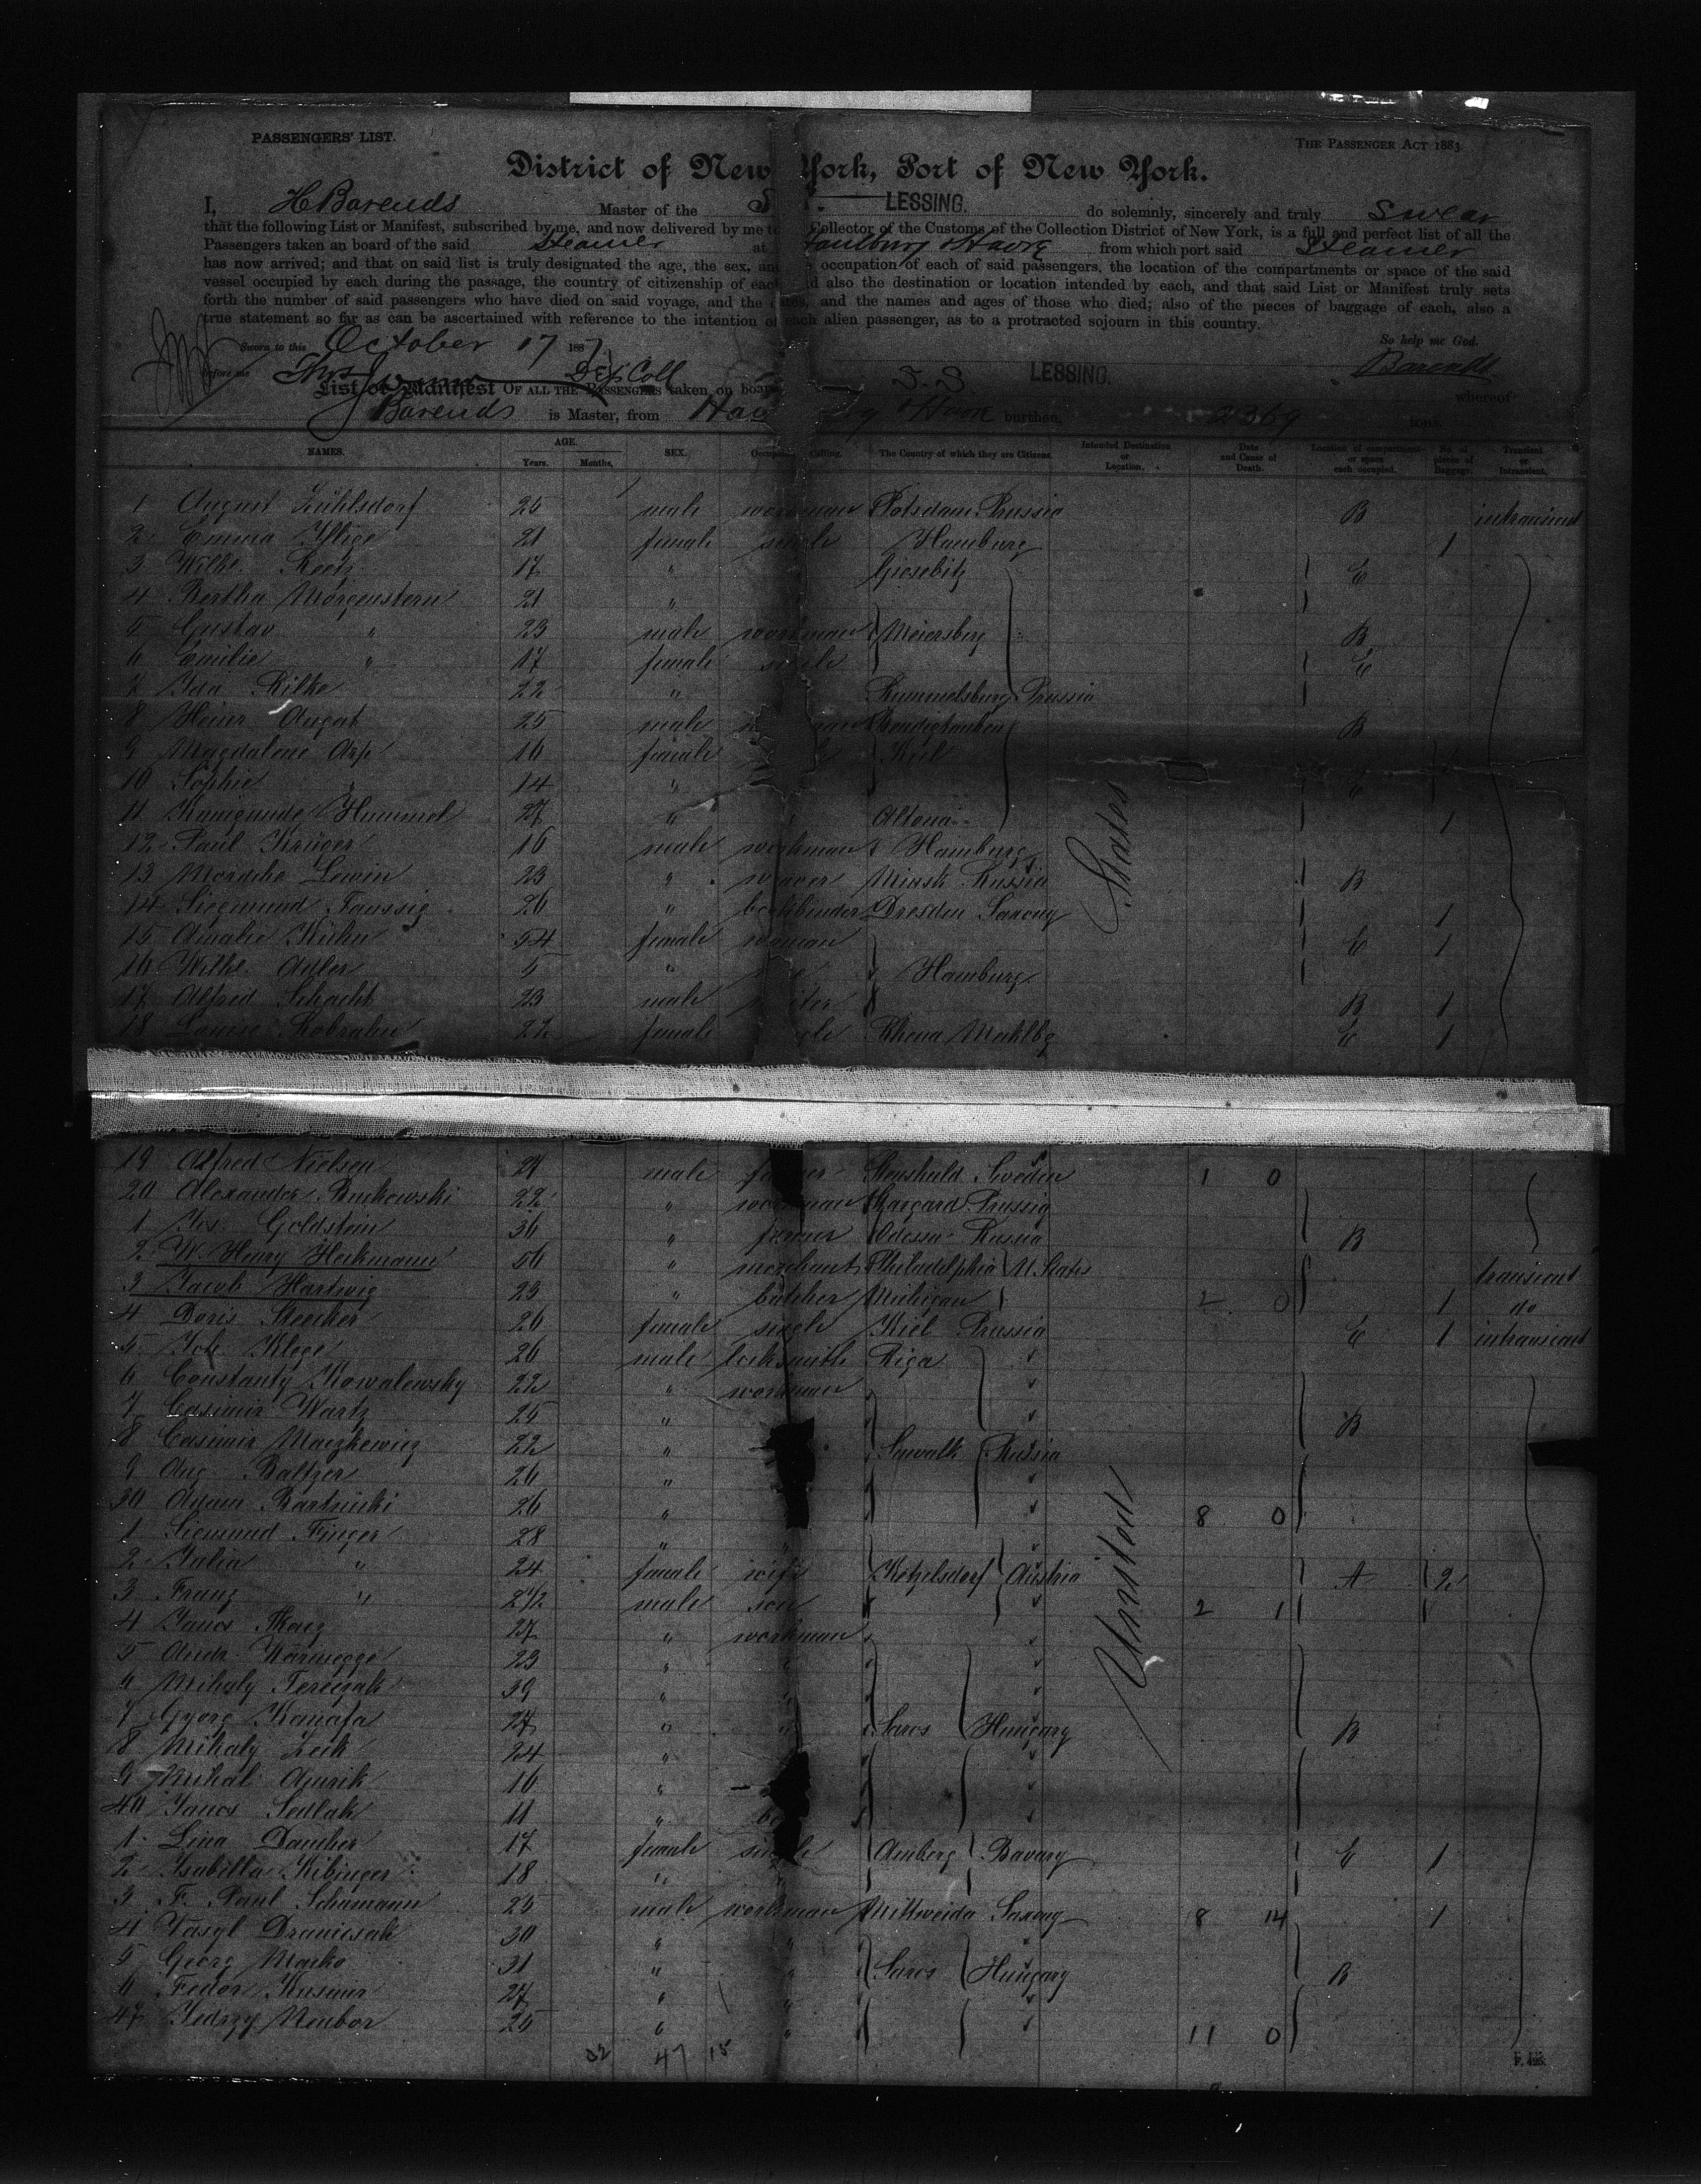 PASSENGERS' LIST.
THE PASSENGER ACT 1883.
District of New York, Port of New York.
I, H Barends Master of the S. LESSING. do solemnly, sincerely and truly swear
that the following List or Manifest, subscribed by me, and now delivered by me to Collector of the Customs of the Collection District of New York, is a full and perfect list of all the
Passengers taken an board of the said Steamer at Hamburg & Havre from which port said Steamer
has now arrived; and that on said list is truly designated the age, the sex, and occupation of each of said passengers, the location of the compartments or space of the said
vessel occupied by each during the passage, the country of citizenship of each and also the destination or location intended by each, and that said List or Manifest truly sets
forth the number of said passengers who have died on said voyage, and the dates, and the names and ages of those who died; also of the pieces of baggage of each, also a
true statement so far as can be ascertained with reference to the intention of each alien passenger, as to a protracted sojourn in this country.
Sworn to this October 17 1887 So help me God.
before me Dep Coll Barends
List or Manifest OF ALL THE PASSENGERS taken on board S.S LESSING. whereof
Barends is Master, from Hamburg & Havre burthen, 2369 tons.
NAMES. AGE. Years. Months. SEX. Occupation Calling. The Country of which they are Citizens. Intended Destination or Location. Date and Cause of Death. Location of compartment or space each occupied. No. of pieces of Baggage. Transient or Intransient.
1 August Zühlsdorf 25 male workman Potsdam Prussia B intransient
2 Emma 21 female single Hamburg 1
3 Wilhe. 17 " E
4 Bertha Morgenstern 21 "
5 Gustav " 23 male workman Meiersberg B
6 Emilie " 17 female single E
7 Ida Rilke 22 " Rummelsburg Prussia
8 Heinr August 25 male workman B
9 Magdalene Arp 16 female Kiel 1
10 Sophie " 14 " E
11 Kunigunde Hummel 27 " Altona 1
12 Paul Krüger 16 male workman Hamburg
13 Mordche Lewin 23 " weaver Minsk Russia B
14 Siegmund Taussig 26 " bookbinder Dresden Saxony 1
15 Amalie Kuhn 54 female woman E 1
16 Wilhe. Adler 5 " Hamburg
17 Alfred Schacht 23 male waiter B 1
18 Louise Kobrahn 22 female single Rhena Mecklbg E 1
19 Alfred Nielsen 27 male farmer Sweden 1 0
20 Alexander Bukowski 22 " workman Stargard Prussia
1 Jos. Goldstein 36 " farmer Odessa Russia B
2 W. Henry Heckmann 56 " merchant Philadelphia U. States transient
3 Jacob Hartwig 23 " butcher Michigan 2 0 1 do
4 Doris Stoecker 26 female single Kiel Prussia E 1 intransient
5 Joh. Klege 26 male locksmith Riga
6 Constanty Kowalewsky 22 " workman
7 Casimir Wartz 25 " B
8 Casimir Maczkewicz 22 " Suwalk Russia
9 Aug. Baltzer 26 "
30 Adam Bartnicki 26 " 8 0
1 Siegmund Finger 28 "
2 Julia " 24 female wife Ketzelsdorf Austria A 2
3 Franz " 2 1/2 male son 2 1
4 Janos 27 " workman
5 Andr. 23 "
6 Mihaly 39 "
7 Györg Kanafa 27 " Saros Hungary B
8 Mihaly 24 "
9 Mihal 16 "
40 Janos Sedlak 11 " boy
1 Lina Dancher 17 female single Amberg Bavary E 1
2 Isabilla Kibinger 18 "
3 F. Paul Schamann 25 male workman Mittweida Saxony 8 14 1
4 Vasyl 30 "
5 Georg Marko 31 " Saros Hungary B
6 Fedor Kusmir 27 "
47 25 " 11 0
United States
32 47 15